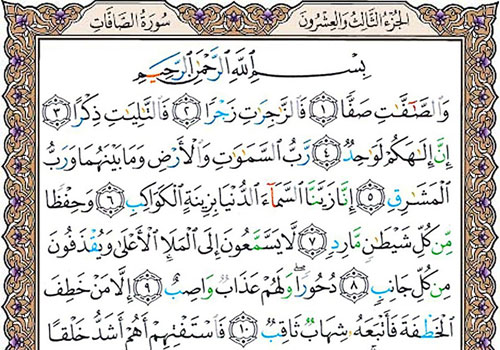 الجزء الثالث والعشرون سورة الصافات
بِسْمِ ٱللَّهِ ٱلرَّحْمَٰنِ ٱلرَّحِيمِ
وَٱلصَّٰٓفَّٰتِ صَفًّا ١ فَٱلزَّٰجِرَٰتِ زَجْرًا ٢ فَٱلتَّٰلِيَٰتِ ذِكْرًا ٣
إِنَّ إِلَٰهَكُمْ لَوَٰحِدٌ ٤ رَّبُّ ٱلسَّمَٰوَٰتِ وَٱلْأَرْضِ وَمَا بَيْنَهُمَا وَرَبُّ
ٱلْمَشَٰرِقِ ٥ إِنَّا زَيَّنَّا ٱلسَّمَآءَ ٱلدُّنْيَا بِزِينَةٍ ٱلْكَوَاكِبِ ٦ وَحِفْظًا
مِّن كُلِّ شَيْطَٰنٍ مَّارِدٍ ٧ لَّا يَسَّمَّعُونَ إِلَى ٱلْمَلَإِ ٱلْأَعْلَىٰ وَيُقْذَفُونَ
مِن كُلِّ جَانِبٍ ٨ دُحُورًا ۖ وَلَهُمْ عَذَابٌ وَاصِبٌ ٩ إِلَّا مَنْ خَطِفَ
ٱلْخَطْفَةَ فَأَتْبَعَهُۥ شِهَابٌ ثَاقِبٌ ١٠ فَٱسْتَفْتِهِمْ أَهُمْ أَشَدُّ خَلْقًا